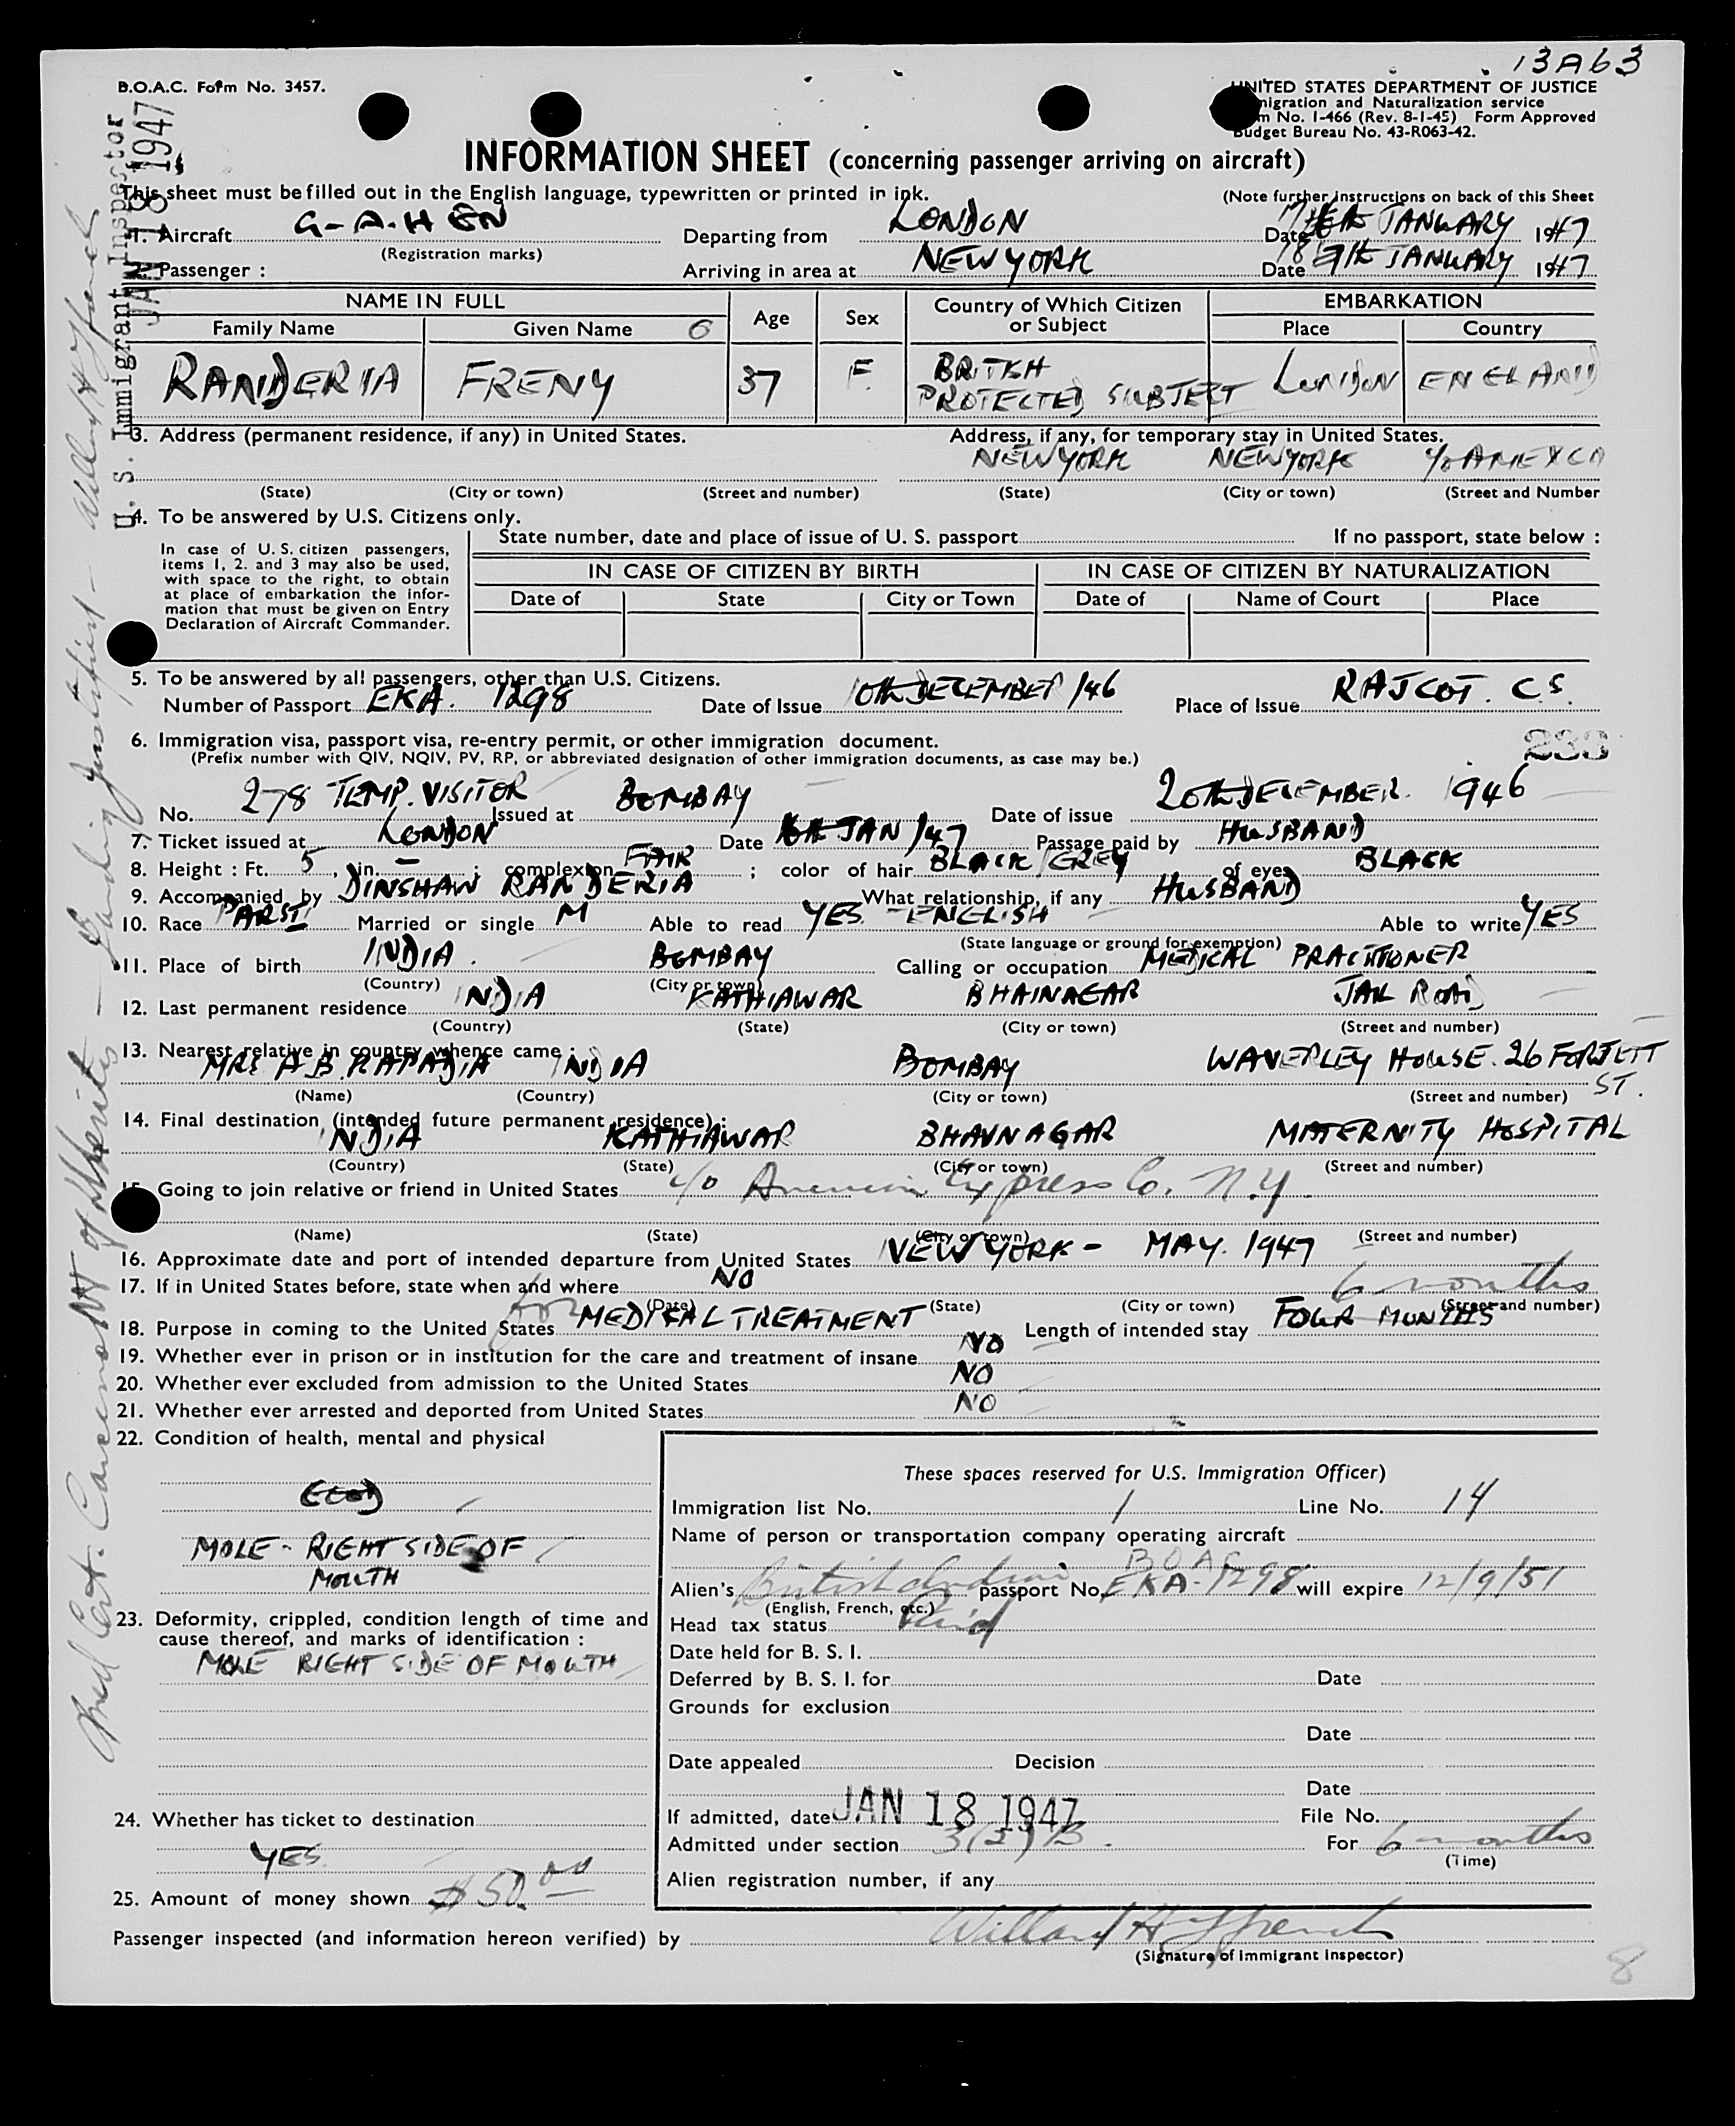 13A63
B.O.A.C. Form No. 3457.
UNITED STATES DEPARTMENT OF JUSTICE
nigration and Naturalization service
m No. I-466 (Rev. 8-1-45) Form Approved
Budget Bureau No. 43-R063-42.
INFORMATION SHEET (concerning passenger arriving on aircraft)
This sheet must be filled out in the English language, typewritten or printed in ink.
(Note further instructions on back of this Sheet
1. Aircraft G-AHEN Departing from LONDON Date 17 JANUARY 1947
(Registration marks)
2. Passenger : Arriving in area at NEW YORK Date 18 JANUARY 1947
NAME IN FULL Age Sex Country of Which Citizen or Subject EMBARKATION
Family Name Given Name 6 Place Country
RANDERIA FRENY 37 F. BRITISH PROTECTED SUBJECT LONDON ENGLAND
3. Address (permanent residence, if any) in United States. Address, if any, for temporary stay in United States.
NEW YORK NEW YORK c/o AMEXCO
(State) (City or town) (Street and number) (State) (City or town) (Street and Number
4. To be answered by U.S. Citizens only.
State number, date and place of issue of U. S. passport If no passport, state below :
In case of U. S. citizen passengers,
items 1, 2. and 3 may also be used,
with space to the right, to obtain
at place of embarkation the infor-
mation that must be given on Entry
Declaration of Aircraft Commander.
IN CASE OF CITIZEN BY BIRTH IN CASE OF CITIZEN BY NATURALIZATION
Date of State City or Town Date of Name of Court Place
5. To be answered by all passengers, other than U.S. Citizens.
Number of Passport EKA. 1298 Date of Issue 10th DECEMBER /46 Place of Issue RAJCOT. C.S.
6. Immigration visa, passport visa, re-entry permit, or other immigration document.
(Prefix number with QIV, NQIV, PV, RP, or abbreviated designation of other immigration documents, as case may be.)
No. 278 TEMP. VISITOR Issued at BOMBAY Date of issue 20th DECEMBER. 1946
7. Ticket issued at LONDON Date JAN /47 Passage paid by HUSBAND
8. Height : Ft. 5, in. — ; complexion FAIR ; color of hair BLACK/GREY of eyes BLACK
9. Accompanied by DINSHAW RANDERIA What relationship, if any HUSBAND
10. Race PARSI Married or single M Able to read YES. - ENGLISH Able to write YES
(State language or ground for exemption)
11. Place of birth INDIA. BOMBAY Calling or occupation MEDICAL PRACTITIONER
(Country) (City or town)
12. Last permanent residence INDIA KATHIAWAR BHAINAGAR JAIL ROAD
(Country) (State) (City or town) (Street and number)
13. Nearest relative in country whence came :
MRS A.B. KAPADIA INDIA BOMBAY WAVERLEY HOUSE. 26 FORJETT ST.
(Name) (Country) (City or town) (Street and number)
14. Final destination (intended future permanent residence) :
INDIA KATHIAWAR BHAVNAGAR MATERNITY HOSPITAL
(Country) (State) (City or town) (Street and number)
15. Going to join relative or friend in United States c/o American Express Co. N.Y.
(Name) (State) (City or town) (Street and number)
16. Approximate date and port of intended departure from United States NEW YORK - MAY. 1947
17. If in United States before, state when and where NO
(Date) (State) (City or town) (Street and number)
6 months
18. Purpose in coming to the United States for MEDICAL TREATMENT Length of intended stay FOUR MONTHS
19. Whether ever in prison or in institution for the care and treatment of insane NO
20. Whether ever excluded from admission to the United States NO
21. Whether ever arrested and deported from United States NO
22. Condition of health, mental and physical
GOOD
MOLE - RIGHT SIDE OF
MOUTH
23. Deformity, crippled, condition length of time and
cause thereof, and marks of identification :
MOLE RIGHT SIDE OF MOUTH
24. Whether has ticket to destination
YES
25. Amount of money shown $50.00
These spaces reserved for U.S. Immigration Officer)
Immigration list No. 1 Line No. 14
Name of person or transportation company operating aircraft
BOAC
Alien's British Indian passport No. EKA-1298 will expire 12/9/51
(English, French, etc.)
Head tax status Paid
Date held for B. S. I.
Deferred by B. S. I. for Date
Grounds for exclusion
Date
Date appealed Decision
Date
If admitted, date JAN 18 1947 File No.
Admitted under section 3(2)B. For 6 months
(Time)
Alien registration number, if any
Passenger inspected (and information hereon verified) by Willard H French
(Signature of Immigrant Inspector)
8
238
U. S. Immigrant Inspector
JAN 18 1947
Med Cert. Carcinoma of Uterus - Landing Justified - Willard H French